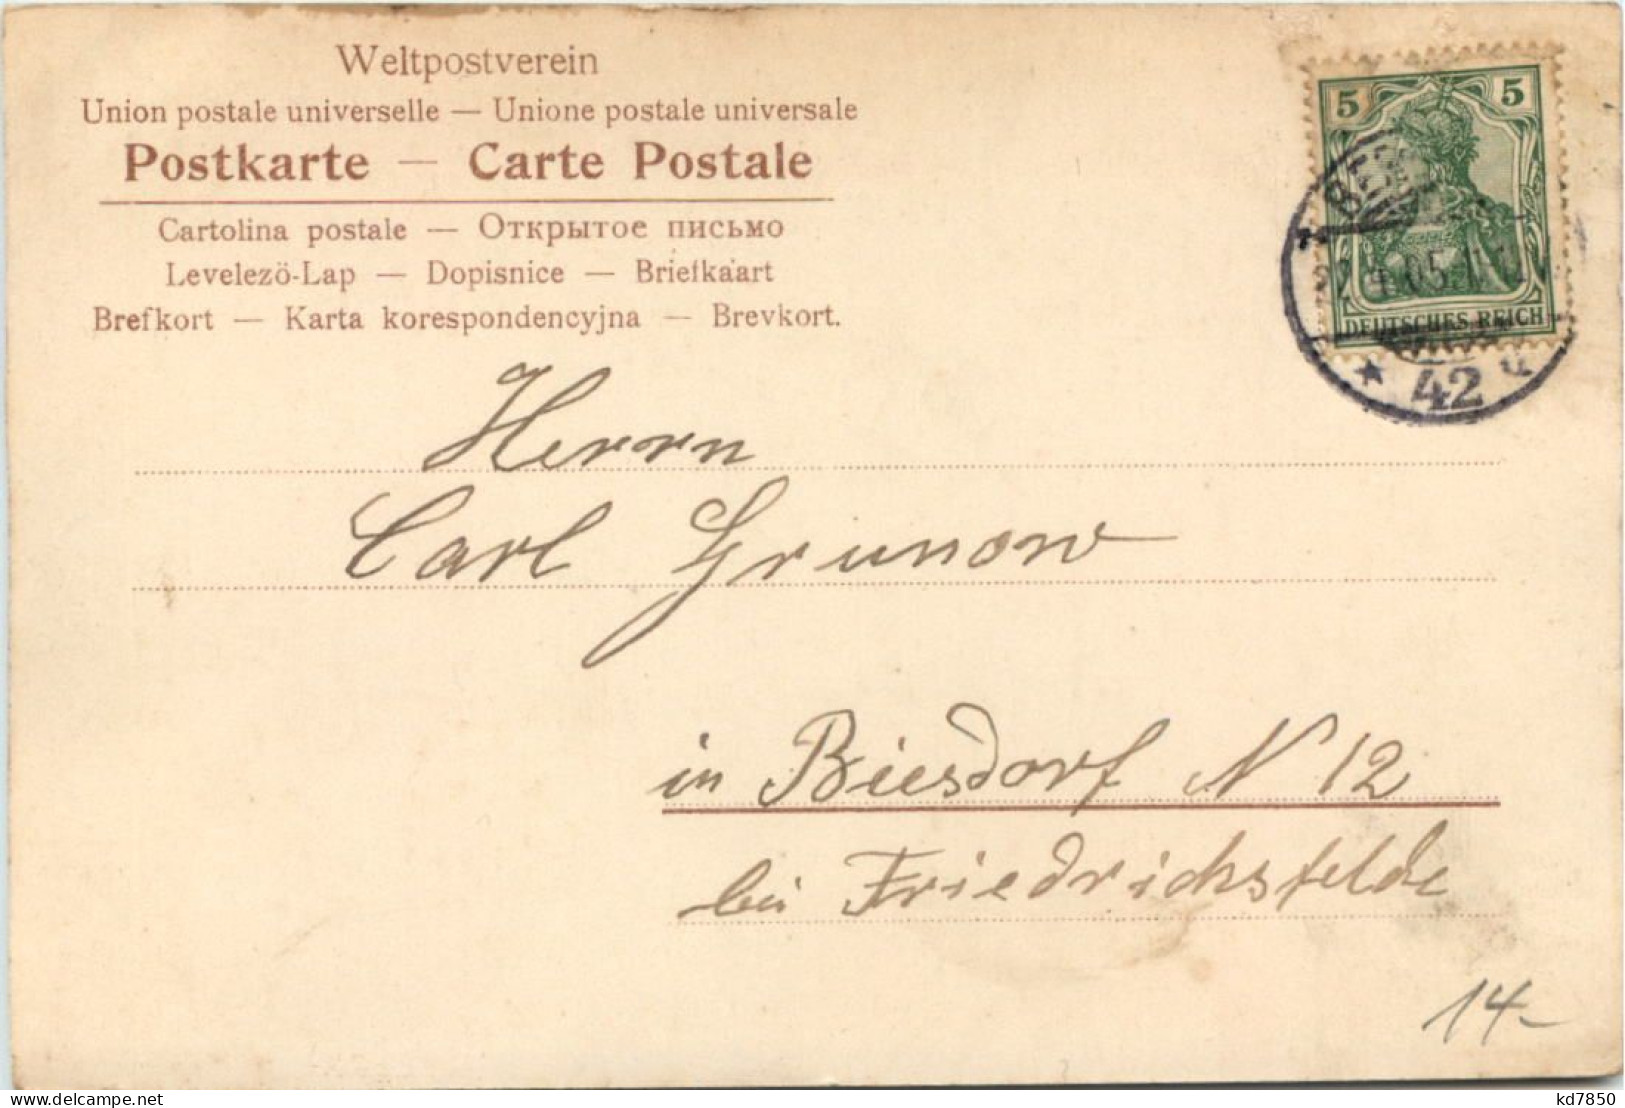 Weltpostverein
Union postale universelle — Unione postale universale
Postkarte — Carte Postale
Cartolina postale — Открытое письмо
Levelezö-Lap — Dopisnice — Briefkaart
Brefkort — Karta korespondencyjna — Brevkort.
5 5
DEUTSCHES REICH
05
* 42
Herrn
Carl Grunow
in Biesdorf N 12
bei Friedrichsfelde
14-
delcampe.net
kd7850